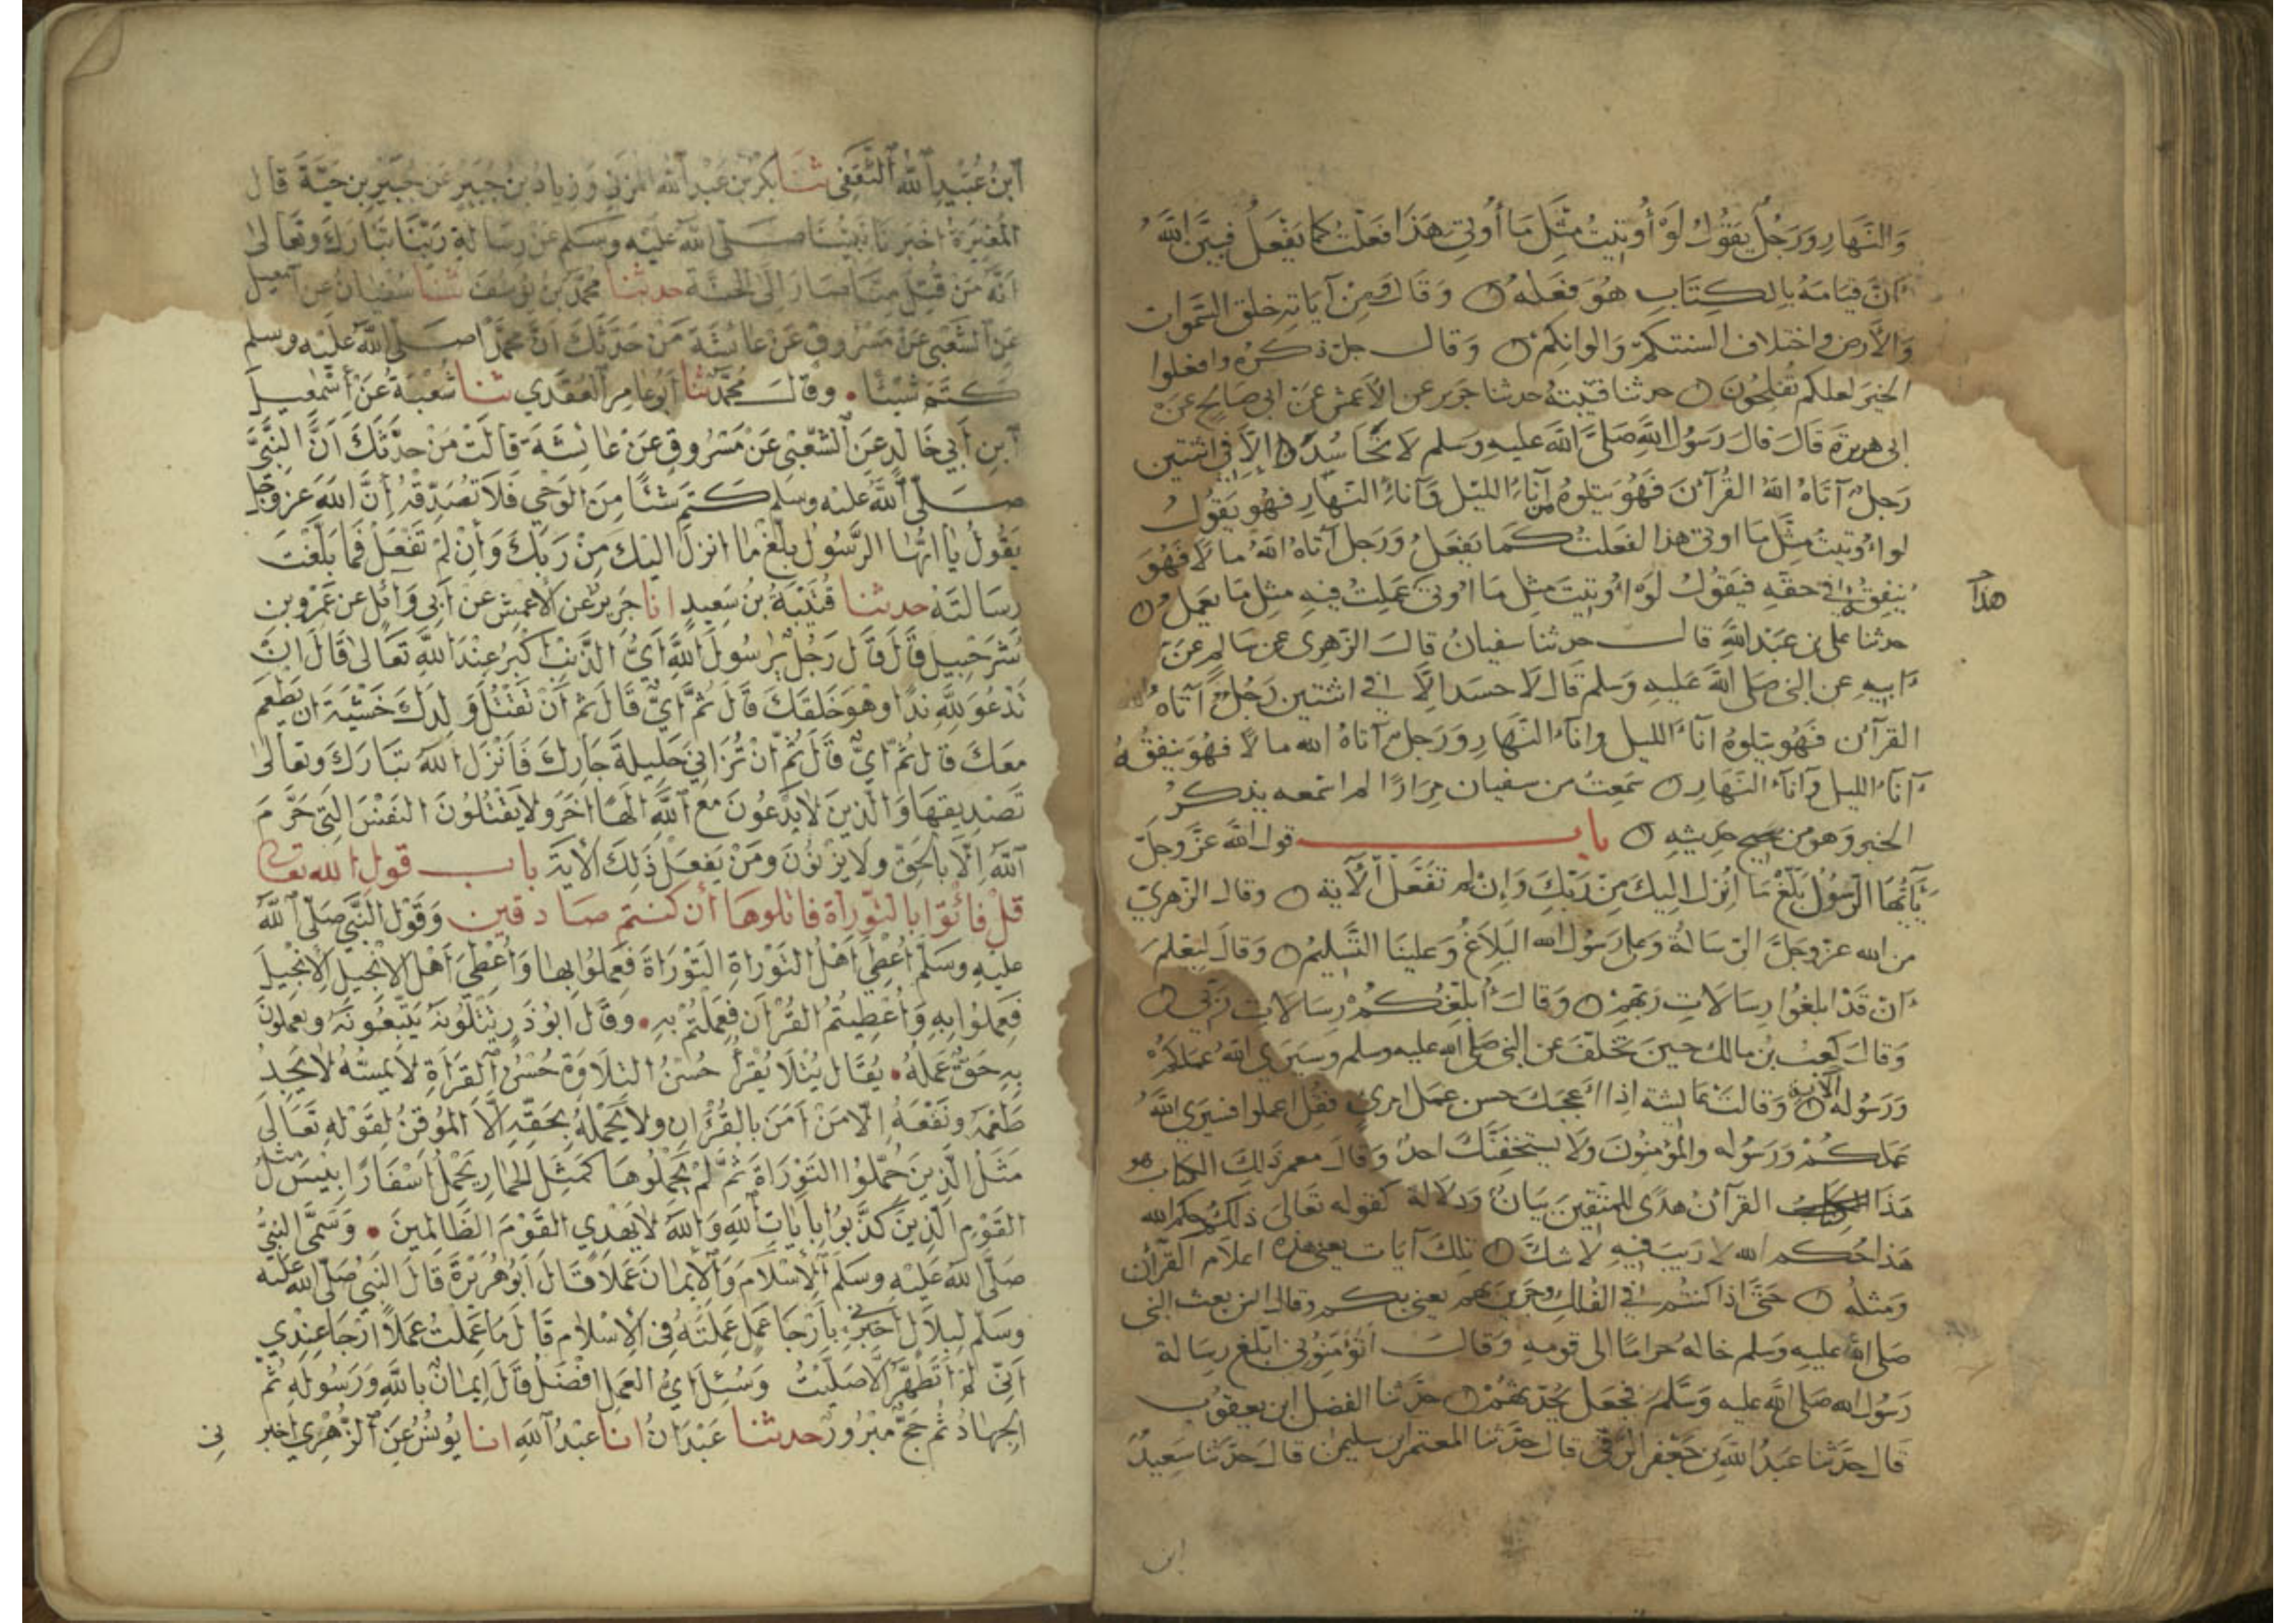 وَالنَّهَارِ وَرَجُلٌ يَقُولُ لَوْ أُوتِيتُ مِثْلَ مَا أُوتِيَ هَذَا فَعَلْتُ كَمَا يَفْعَلُ فَبَيَّنَ اللهُ
اَنَّ قِيَامَهُ بِالْكِتَابِ هُوَ فِعْلُهُ وَقَالَ وَمِنْ آيَاتِهِ خلق السَّمَوات
وَالأَرض واختلاف السنتكم وَالوانكم وَقال جل ذكره وافعلوا
الخيرَ لعلكم تُفلِحُونَ حدثنا قتيبة حدثنا جرير عن الأعمش عَن ابى صَالِح عَنْ
ابى هريرة قَالَ قالَ رَسُولُ اللهِ صَلى اللهَ عليهِ وَسلم لَا تَحَاسُدَ اِلاَّ فِي اثنتين
رَجلٌ آتَاهُ اللهُ القُرآنَ فَهُوَ يَتلوهُ من آنَاءَ الليْلِ وَآناءَ النَهارِ فَهُو يَقُولُ
لو اُوتيتُ مِثْلَ مَا اوتى هذا لفَعَلتُ كَما يَفعَلُ وَرَجل آتاهُ اللهُ مالاً فَهُوَ
يُنفِقُهُ فى حقهِ فيَقولُ لَوْ اُوتيتَ مثِل مَا اُوتىَ عَمِلتُ فيهِ مثِل مَا يعَمل
هذا
حدثنا على بن عَبْدِ اللهِ قال حدثنا سفيانُ قالَ الزهرى عن سَالِم عَنْ
اَبيهِ عن النبى صَلى اللهَ عَليهِ وَسلم قَال لَا حسَدَ اِلاَّ فى اثنتين رَجُلٌ آتاهُ الله
القرآن فَهُو يَتلوهُ آناءَ الليل وَاناءَ النَهارِ وَرَجلٌ آتاهُ الله مالاً فهُوَ ينفقُهُ
آناءَ الليل وَآناءَ النَهَارِ سَمِعتُ من سفيان مِرَارًا لم اسمعه يذكر
الخبر وَهو من صحيح حَدِيثِهِ باب قول اللهِ عَزَّ وَجلَّ
يَأَيُّهَا الرَّسُولُ بَلِّغْ مَا اُنْزِلَ اِلَيكَ مِنْ رَبِّكَ وَاِن لم تَفْعَل الآية وقال الزهرىّ
من الله عز وجلَّ الرّسَالةُ وَعلى رَسُول الله البَلاَغُ وَعَلينَا التَّسْلِيمُ وَقالَ لِيَعْلمَ
اَنْ قَدْ ابلغُوا رِسَالاَتِ رَبهِمْ وَقالَ اُبلِّغُكُمْ رِسَالاَتِ رَبِّى
وَقالَ كَعبُ بن مالك حينَ تَخلّفَ عن النبى صَلى الله عليه وسلم وسَيَرى اللهُ عَمَلَكُمْ
وَرَسُوله الآية وَقالتْ عَائشة اِذا اَعْجَبَكَ حسن عمل امرئ فقُل اعملوا فسيَرى اللهُ
عَمَلكُمْ وَرَسُوله والمؤمنُونَ وَلَا يَستخفنَّكَ احدٌ وَقالَ معمر ذَلِكَ الكتاب هو
هَذَا القرآنُ هُدًى للمتقين بيَانٌ وَدلالة كَقوله تَعَالَى ذَلِكُمْ حكم الله
هَذا حُكم الله لا رَيبَ فِيهِ لا شكَّ تِلكَ آيات يعنى هذه اعلاَم القرآن
وَمثله حَتَّى اذا كنتم فى الفلك وَجرين بهم يعنى بكم وقال انس بعث النبى
صَلى الله عليه وَسلم خاله حرامًا الى قومهِ وَقالَ أتُؤمِنُونى ابَلغ رسَالة
رَسُول الله صَلى الله عليه وَسَلم فجعَل يحُدِّثهُمْ حدَّثنا الفضل ابن يعقوب
قال حدَّثنا عَبدُ اللهِ بن جَعْفر الرَقىّ قالَ حدَّثنا المعتمر ابن سليمن قالَ حدَّثنا سَعِيدُ
ابن
اَبنُ عُبَيْدِ اللهِ الثَّقَفِى ثنَا بَكرُ بْن عَبْدِ الله المُزَنِى وَزِيادُ بن جُبَيْرٍ عَن جُبَيْرِ بن حَيَّةَ قال
المُغِيرَةُ اخبَرنَا نَبيُّنَا صَلَّى اللهُ عَليْهِ وسَلم عَنْ رِسَالةِ رَبِّنَا تَبَارَكَ وتَعَالى
انَّهُ مَنْ قُتِلَ مِنَّا صَارَ اِلَى الجنَّة حدثنا محمَّدُ بن يُوسُفَ ثَنَا سُفْيانُ عن اسمعيل
عَنِ الشَّعْبِى عَنْ مَسْرُوقٍ عَنْ عَائشَةَ مَنْ حَدَّثَكَ اَنَّ محمَّدًا صَلَّى اللهُ عَليْهِ وسلم
كتَمَ شيْئًا وقالَ مُحمَّدٌ ثنا أبُو عَامِر العَقَدِي ثنا شُعْبَةُ عَنْ اسْمعِيلَ
ابنِ أبِي خَالدٍ عَن الشَعْبى عَنْ مَسْرُوقٍ عَنْ عَائِشَةَ قَالتْ مَنْ حدَّثَكَ اَنَّ النَّبىَّ
صَلَّى اللهُ عَليْهِ وسلم كتمَ شَيْئًا مِنَ الوَحْى فَلاَ تُصَدِّقْهُ اِنَّ اللهَ عَز وَجَل
يَقُولُ يَا ايُّهَا الرَّسُولُ بَلِّغْ مَا انزلَ اِليْكَ مِنْ رَبِّكَ وَاِنْ لَمْ تَفْعَلْ فَمَا بَلَّغْتَ
رِسَالتَهُ حدثنا قُتَيْبَةُ بْنُ سَعِيدٍ انا جَرِيرٌ عَنِ الأعْمَشِ عَنْ أبِى وَائِلٍ عن عَمْرِو بن
شُرَحْبِيلَ قَالَ قَالَ رَجُلٌ يَا رسُولَ اللهِ أىُّ الذَّنْبِ اَكْبَرُ عِنْدَ اللهِ تَعَالى قَالَ ان
تَدْعُوَ للهِ نِدًّا وهُوَ خَلَقَكَ قَالَ ثُمَّ أىٌّ قَالَ ثم اَنْ تَقْتُلَ وَلدَكَ خَشْيَةَ ان يَطْعم
مَعَكَ قال ثُمَّ أىٌّ قَالَ ثُمَّ انْ تُزَانِىَ حَلِيلةَ جَارِكَ فَاَنْزَلَ اللهُ تَبَارَكَ وتَعَالى
تَصْدِيقَهَا وَالَّذِينَ لا يَدْعُونَ مَعَ اللهِ اِلَهًا آخَرَ ولَا يَقْتُلُونَ النَفْسَ الَّتِى حَرَّمَ
اللهُ اِلَّا بالحَقِّ ولَا يَزْنُونَ ومَنْ يَفعَلْ ذَلِكَ الآيَة باب قول الله تعالى
قلْ فائْتوا بالتّوراة فاتلوها ان كنتم صادقين وَقَوْلِ النَّبى صَلَّى اللهُ
عليْهِ وسَلم اُعْطِىَ أهْلُ التَوْرَاةِ التَوْرَاةَ فَعَمِلُوا بهَا وَاُعْطِىَ أَهْلُ الاِنْجِيلِ الاِنْجِيلَ
فَعَمِلُوا بِهِ وَاُعْطِيتُمُ القُرْآنَ فَعَمِلْتُمْ بِهِ وَقَالَ ابُو رَزِينٍ يَتْلُونَهُ يَتَّبِعُونَهُ ويَعملونَ
بِهِ حَقَّ عَمَلِهِ يُقَالُ يُتْلَا يُقْرَأ حُسْنُ التلَاوَة حُسْنُ القرَاءَةِ لا يَمسُّهُ لا يَجِدُ
طَعْمَهُ ونَفْعَهُ اِلّا مَنْ اَمَنَ بالقُرْآنِ ولَا يَحْمِلهُ بِحَقِّهِ اِلَّا المُوقِنُ لِقَوْلِهِ تَعَالَى
مَثَلُ الَّذِينَ حُمِّلُوا التَوْرَاةَ ثُمَّ لَمْ يَحْمِلُوهَا كَمَثَلِ الحِمَارِ يَحْمِلُ اَسْفَارًا بِئْسَ مَثَلُ
القَوْمِ الَّذِينَ كَذَّبُوا بِآيَاتِ اللهِ وَاللهُ لا يَهْدِي القَوْمَ الظَّالِمِينَ وَسَمَّى النبىُّ
صَلَّى اللهُ عَلَيْهِ وسَلَم الاِسْلامَ وَالاِيمَانَ عَمَلاً قَالَ اَبُو هُرَيْرَةَ قَالَ النَبِى صَلَّى اللهُ عَليْه
وَسَلم لِبِلَالٍ اَخْبِرْنِى بِاَرْجَا عَمَلٍ عَمِلْتَهُ فِى الاِسْلام قَالَ مَا عَمِلْتُ عَمَلاً ارْجَا عِنْدِي
اَنِّى لَمْ اتَطَهَّرْ اِلَّا صَلَّيْتُ وَسُئِلَ اىُّ العَمَلِ افْضَلُ قَالَ اِيمَانٌ باللهِ وَرَسُولِهِ ثُم
الجِهَادُ ثُم حَجٌّ مَبْرُورٌ حدثنا عَبْدَانُ انا عَبْدُ اللهِ انا يُونُسُ عَنِ الزُّهْرِي اخبر
نى